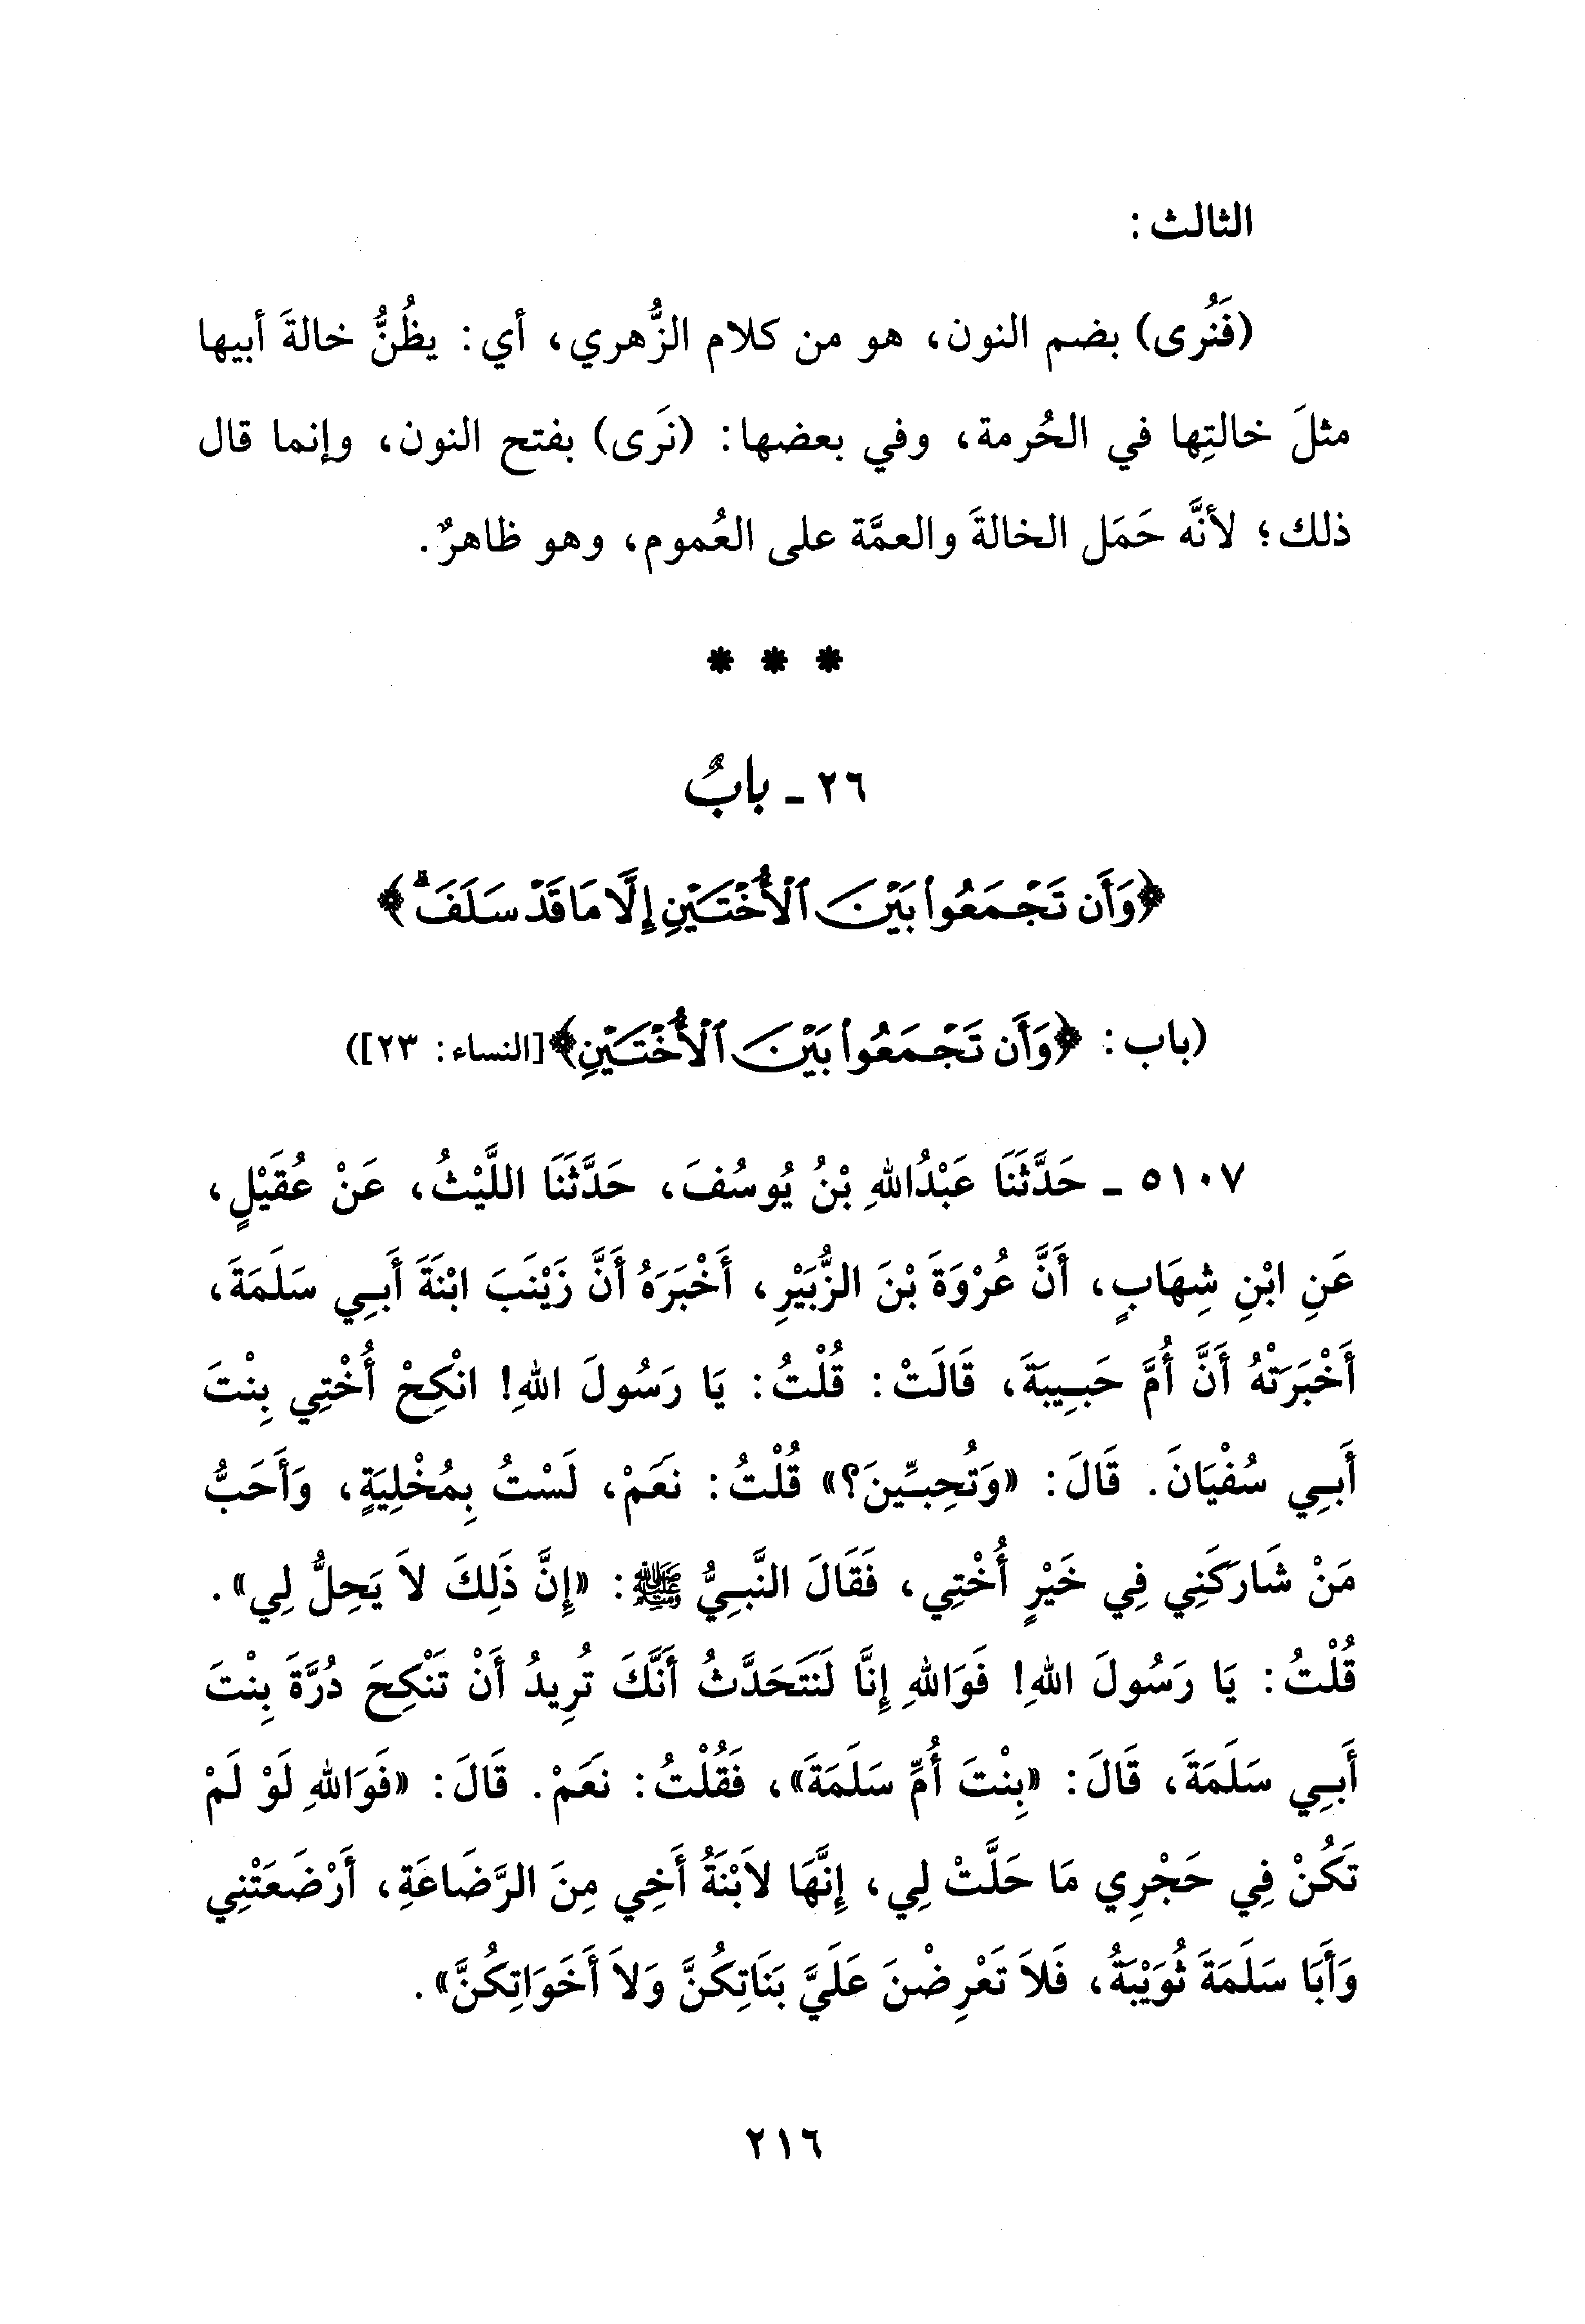 الثالث:
(فَنُرى) بضم النون، هو من كلام الزُّهري، أي: يظُنُّ خالةَ أبيها
مثلَ خالتِها في الحُرمة، وفي بعضها: (نَرى) بفتح النون، وإنما قال
ذلك؛ لأنَّه حَمَل الخالةَ والعمَّة على العُموم، وهو ظاهرٌ.
* * *
٢٦ - بابٌ
﴿وَأَن تَجْمَعُوا بَيْنَ ٱلْأُخْتَيْنِ إِلَّا مَا قَدْ سَلَفَ ۗ﴾
(باب: ﴿وَأَن تَجْمَعُوا بَيْنَ ٱلْأُخْتَيْنِ﴾ [النساء: ٢٣])
٥١٠٧ - حَدَّثَنَا عَبْدُاللهِ بْنُ يُوسُفَ، حَدَّثَنَا اللَّيْثُ، عَنْ عُقَيْلٍ،
عَنِ ابْنِ شِهَابٍ، أَنَّ عُرْوَةَ بْنَ الزُّبَيْرِ، أَخْبَرَهُ أَنَّ زَيْنَبَ ابْنَةَ أَبِي سَلَمَةَ،
أَخْبَرَتْهُ أَنَّ أُمَّ حَبِيبَةَ، قَالَتْ: قُلْتُ: يَا رَسُولَ اللهِ! انْكِحْ أُخْتِي بِنْتَ
أَبِي سُفْيَانَ. قَالَ: «وَتُحِبِّينَ؟» قُلْتُ: نَعَمْ، لَسْتُ بِمُخْلِيَةٍ، وَأَحَبُّ
مَنْ شَارَكَنِي فِي خَيْرٍ أُخْتِي، فَقَالَ النَّبِيُّ ﷺ: «إِنَّ ذَلِكَ لاَ يَحِلُّ لِي».
قُلْتُ: يَا رَسُولَ اللهِ! فَوَاللهِ إِنَّا لَنَتَحَدَّثُ أَنَّكَ تُرِيدُ أَنْ تَنْكِحَ دُرَّةَ بِنْتَ
أَبِي سَلَمَةَ، قَالَ: «بِنْتَ أُمِّ سَلَمَةَ»، فَقُلْتُ: نَعَمْ. قَالَ: «فَوَاللهِ لَوْ لَمْ
تَكُنْ فِي حَجْرِي مَا حَلَّتْ لِي، إِنَّهَا لاَبْنَةُ أَخِي مِنَ الرَّضَاعَةِ، أَرْضَعَتْنِي
وَأَبَا سَلَمَةَ ثُوَيْبَةُ، فَلاَ تَعْرِضْنَ عَلَيَّ بَنَاتِكُنَّ وَلاَ أَخَوَاتِكُنَّ».
٢١٦